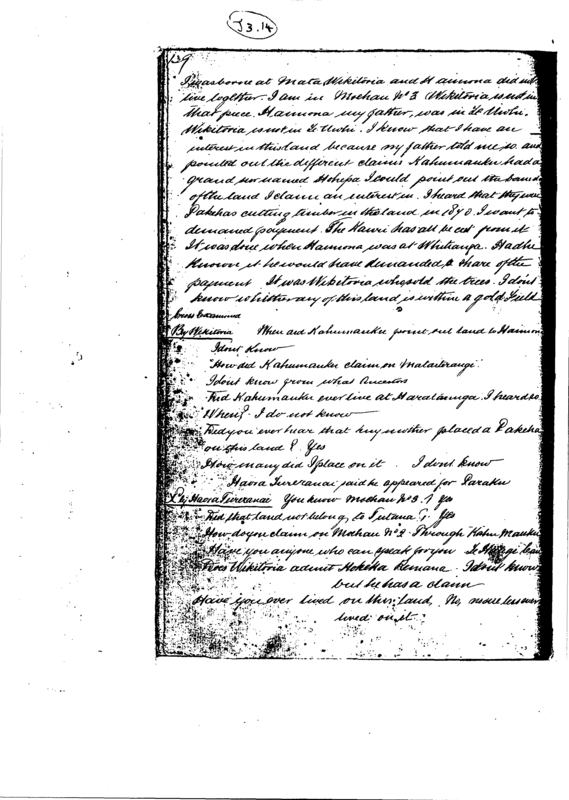 J 3.14
139
I was borne at Mata Wikitoria and Haimona did not
live together. I am in Moehau No 3 Wikitoria is not in
that piece. Haimona my father, was in Te Uwhi.
Wikitoria is not in Te Uwhi. I know that I have an
interest in this land because my father told me so and
pointed out the different claims Kahumanku had a
grand son named Hohepa I could point out the
of the land I claim an interest in. I heard that they were
Pakehas cutting timber in the land in 1870. I want to
demand payment. The Kauri has all be cut from it
It was done when Haimona was at Whitianga. Had he
known it he would have demanded a share of the
payment It was Wikitoria who sold the trees. I dont
know whether any of this land is within a gold Field
Cross Examined
By Wikitoria When did Kahumanku point out land to Haimona
I dont know
How did Kahumanku claim on
I dont know from what Ancestor
Did Kahumanku ever live at Harataunga. I heard so.
When? I do not know
Did you ever hear that my mother placed a Pakeha
on this land? Yes
How many did I place on it. I dont know
Haora Tureranai said he appeared for
By Haora Tureranai You know Moehau No 3.? Yes
Did that land not belong to Tutana? Yes
How do you claim on Moehau No 2. Through Kahu Manku
Have you anyone who can speak for you Te
Does Wikitoria admit I dont know
but he has a claim
Have you ever lived on this land, No,
lived on it